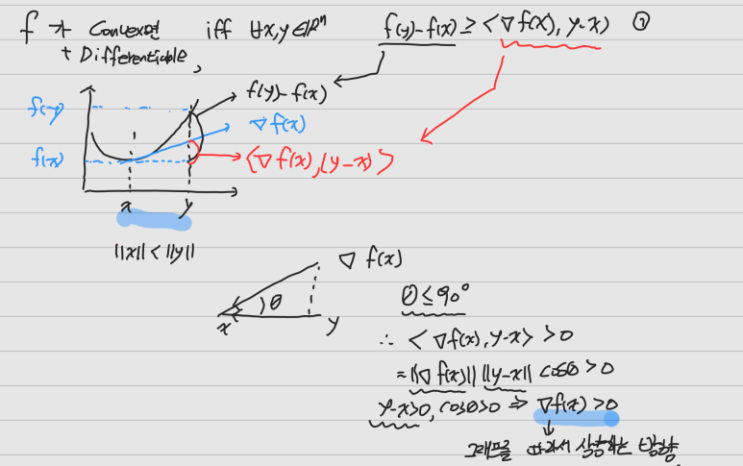 f가 Convex면 iff ∀x,y∈ℝⁿ f(y)-f(x) ≥ <∇f(x), y-x> ①
+ Differentiable,
f(y)
f(y)-f(x)
∇f(x)
f(x)
<∇f(x),(y-x)>
x y
||x|| < ||y||
∇ f(x)
θ
x y
θ ≤ 90°
∴ <∇f(x), y-x> > 0
= ||∇f(x)|| ||y-x|| cosθ > 0
y-x>0, cosθ>0 ⇒ ∇f(x) > 0
그래프를 따라서 상승하는 방향